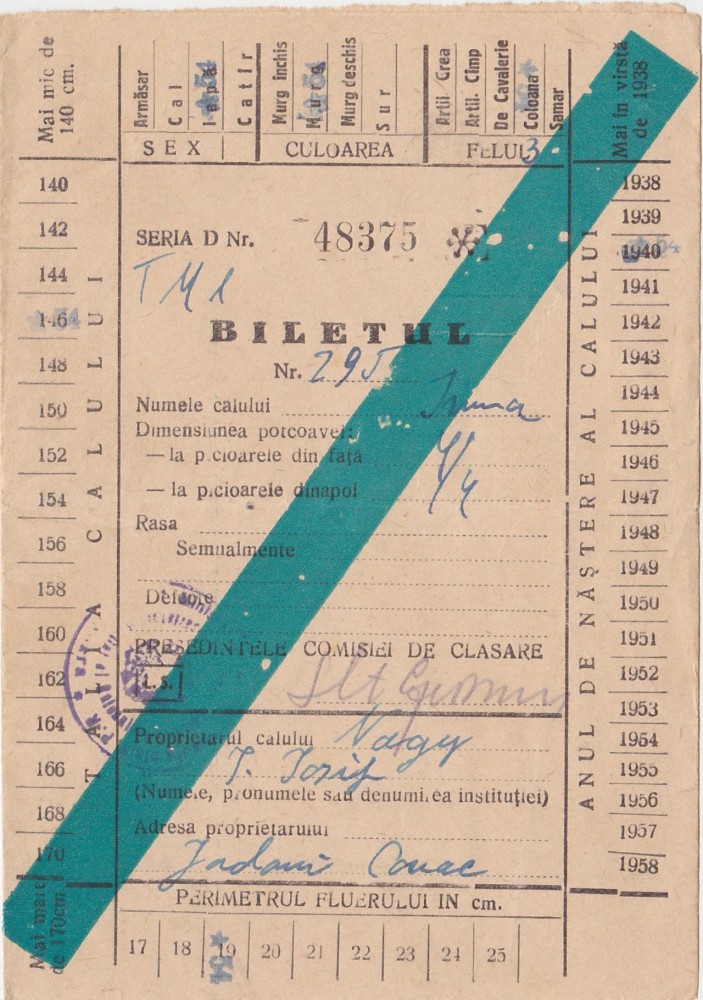 Mai mic de
140 cm.
Armăsar
Cal
Iapă
Catîr
SEX
Murg închis
Murg
Murg deschis
Sur
CULOAREA
Artil. Grea
Artil. Cîmp
De Cavalerie
Coloana
Samar
FELUL
3
Mai în vîrstă
de 1938
TALIA CALULUI
140
142
144
146
148
150
152
154
156
158
160
162
164
166
168
170
Mai mare
de 170cm
SERIA D Nr. 48375
TM1
BILETUL
Nr. 295
Numele calului
Dimensiunea potcoavei:
—la picioarele din față 4/
—la picioarele dinapoi 4
Rasa
Semnalmente
Defecte
PREȘEDINTELE COMISIEI DE CLASARE
L. S.
Proprietarul calului Nagy
I. Iosif
(Numele, pronumele sau denumirea instituției)
Adresa proprietarului
Iadani
PERIMETRUL FLUERULUI IN cm.
17 18 19 20 21 22 23 24 25
54
ANUL DE NĂȘTERE AL CALULUI
1938
1939
1940
1941
1942
1943
1944
1945
1946
1947
1948
1949
1950
1951
1952
1953
1954
1955
1956
1957
1958